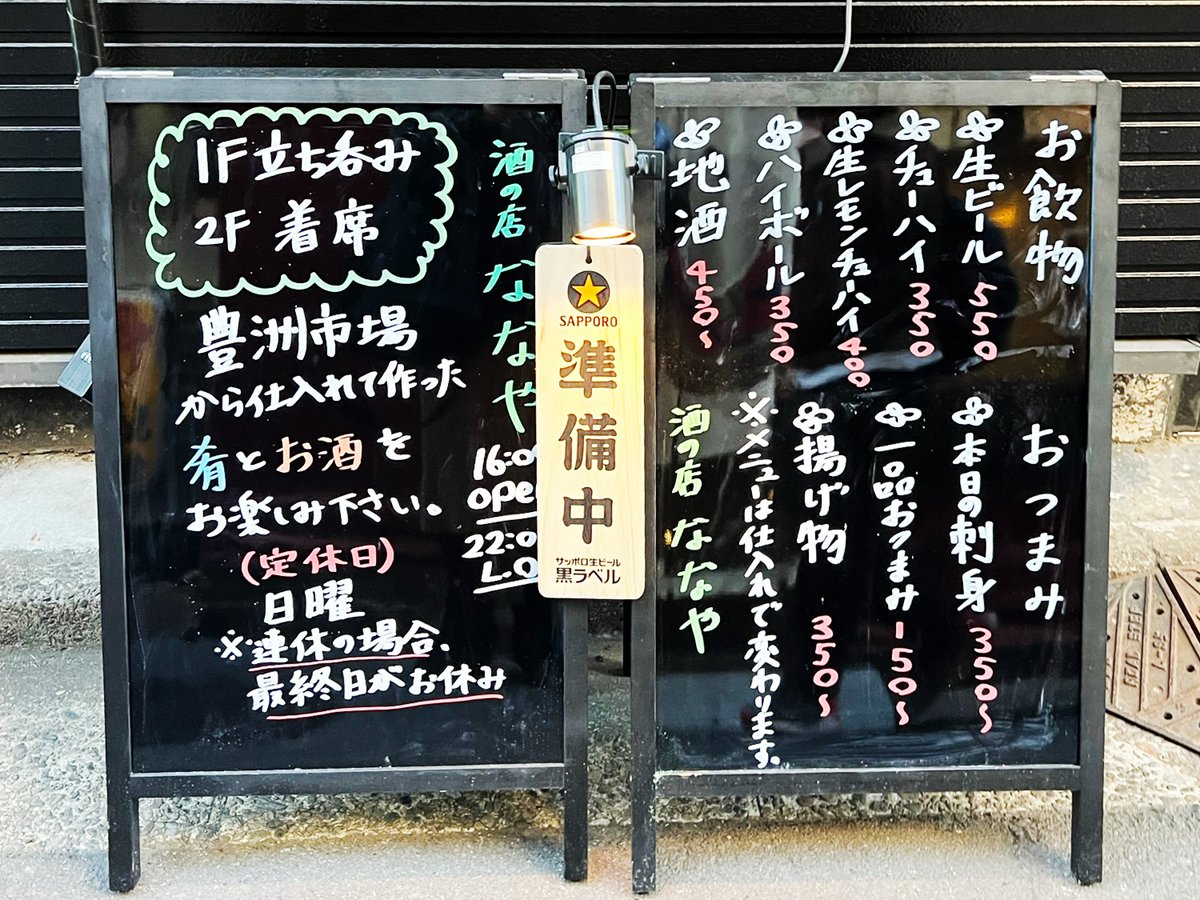 1F 立ち呑み
2F 着席
豊洲市場
から仕入れて作った
肴とお酒を
お楽しみ下さい。
(定休日)
日曜
※連休の場合、
最終日がお休み
酒の店 ななや
16:0
OPE
22:0
L.O
SAPPORO
準備中
サッポロ生ビール
黒ラベル
お飲物
生ビール 550
チューハイ 350
生レモンチューハイ 400
ハイボール 350
地酒 450~
おつまみ
本日の刺身 350~
一品おつまみ 150~
揚げ物 350~
※メニューは仕入れで変わります。
酒の店 ななや